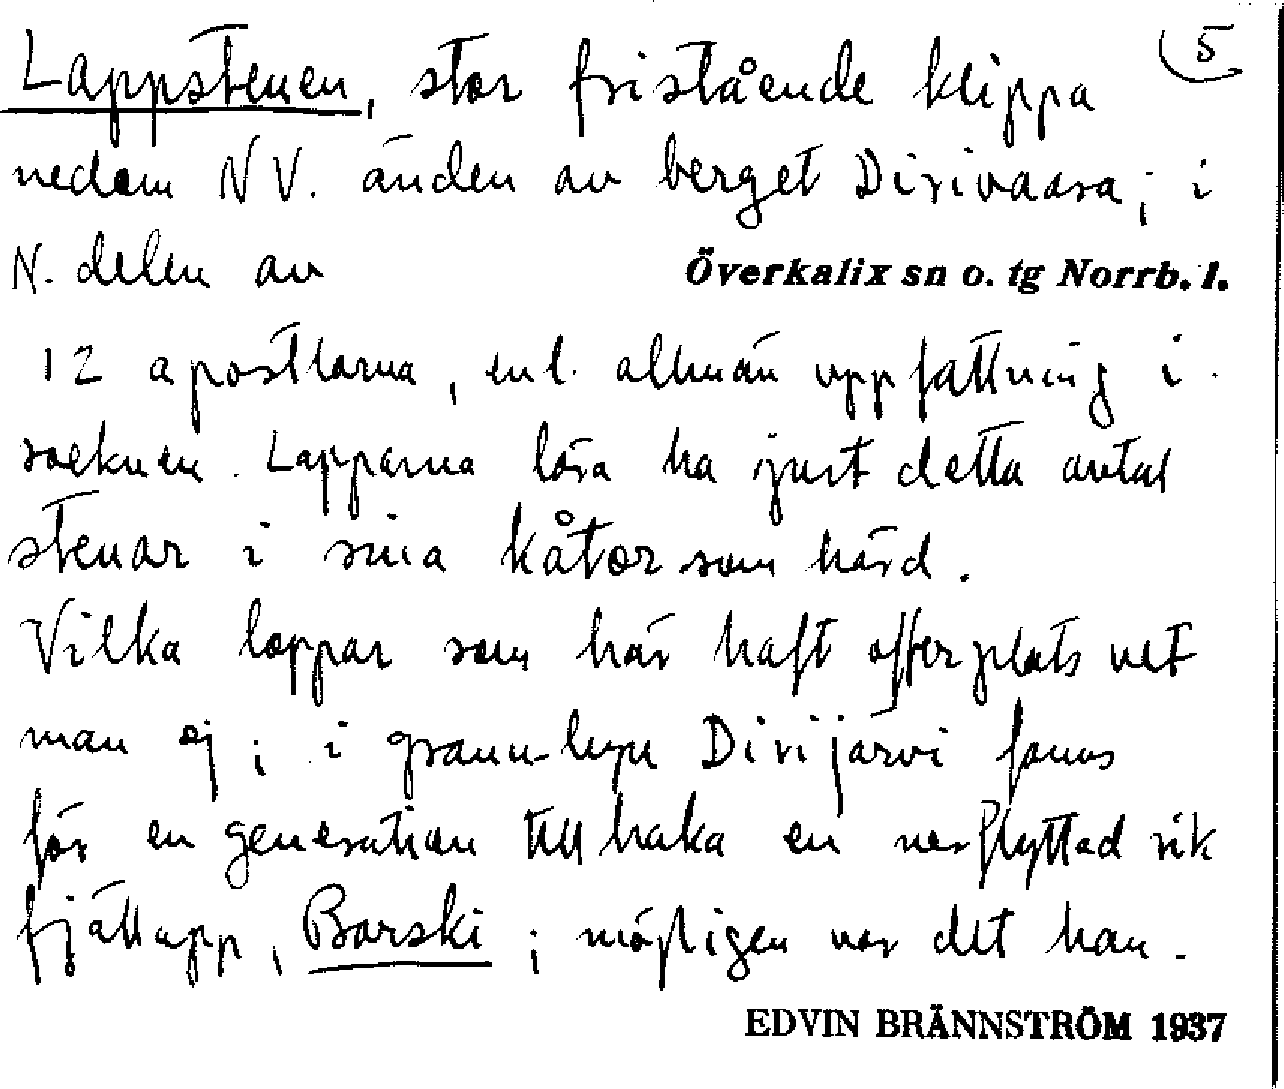 5
Lappstenen, stor fristående klippa
nedom NV. änden av berget Dirivaara; i
N. delen av Överkalix sn o. tg Norrb. l.
12 apostlarna, enl. allmän uppfattning i
socknen. Lapparna lära ha just detta antal
stenar i sina kåtor som härd.
Vilka lappar som här haft offerplats vet
man ej; i grann-byn Dirijärvi fanns
för en generation tillbaka en nerflyttad rik
fjällapp, Barski; möjligen var det han.
EDVIN BRÄNNSTRÖM 1937